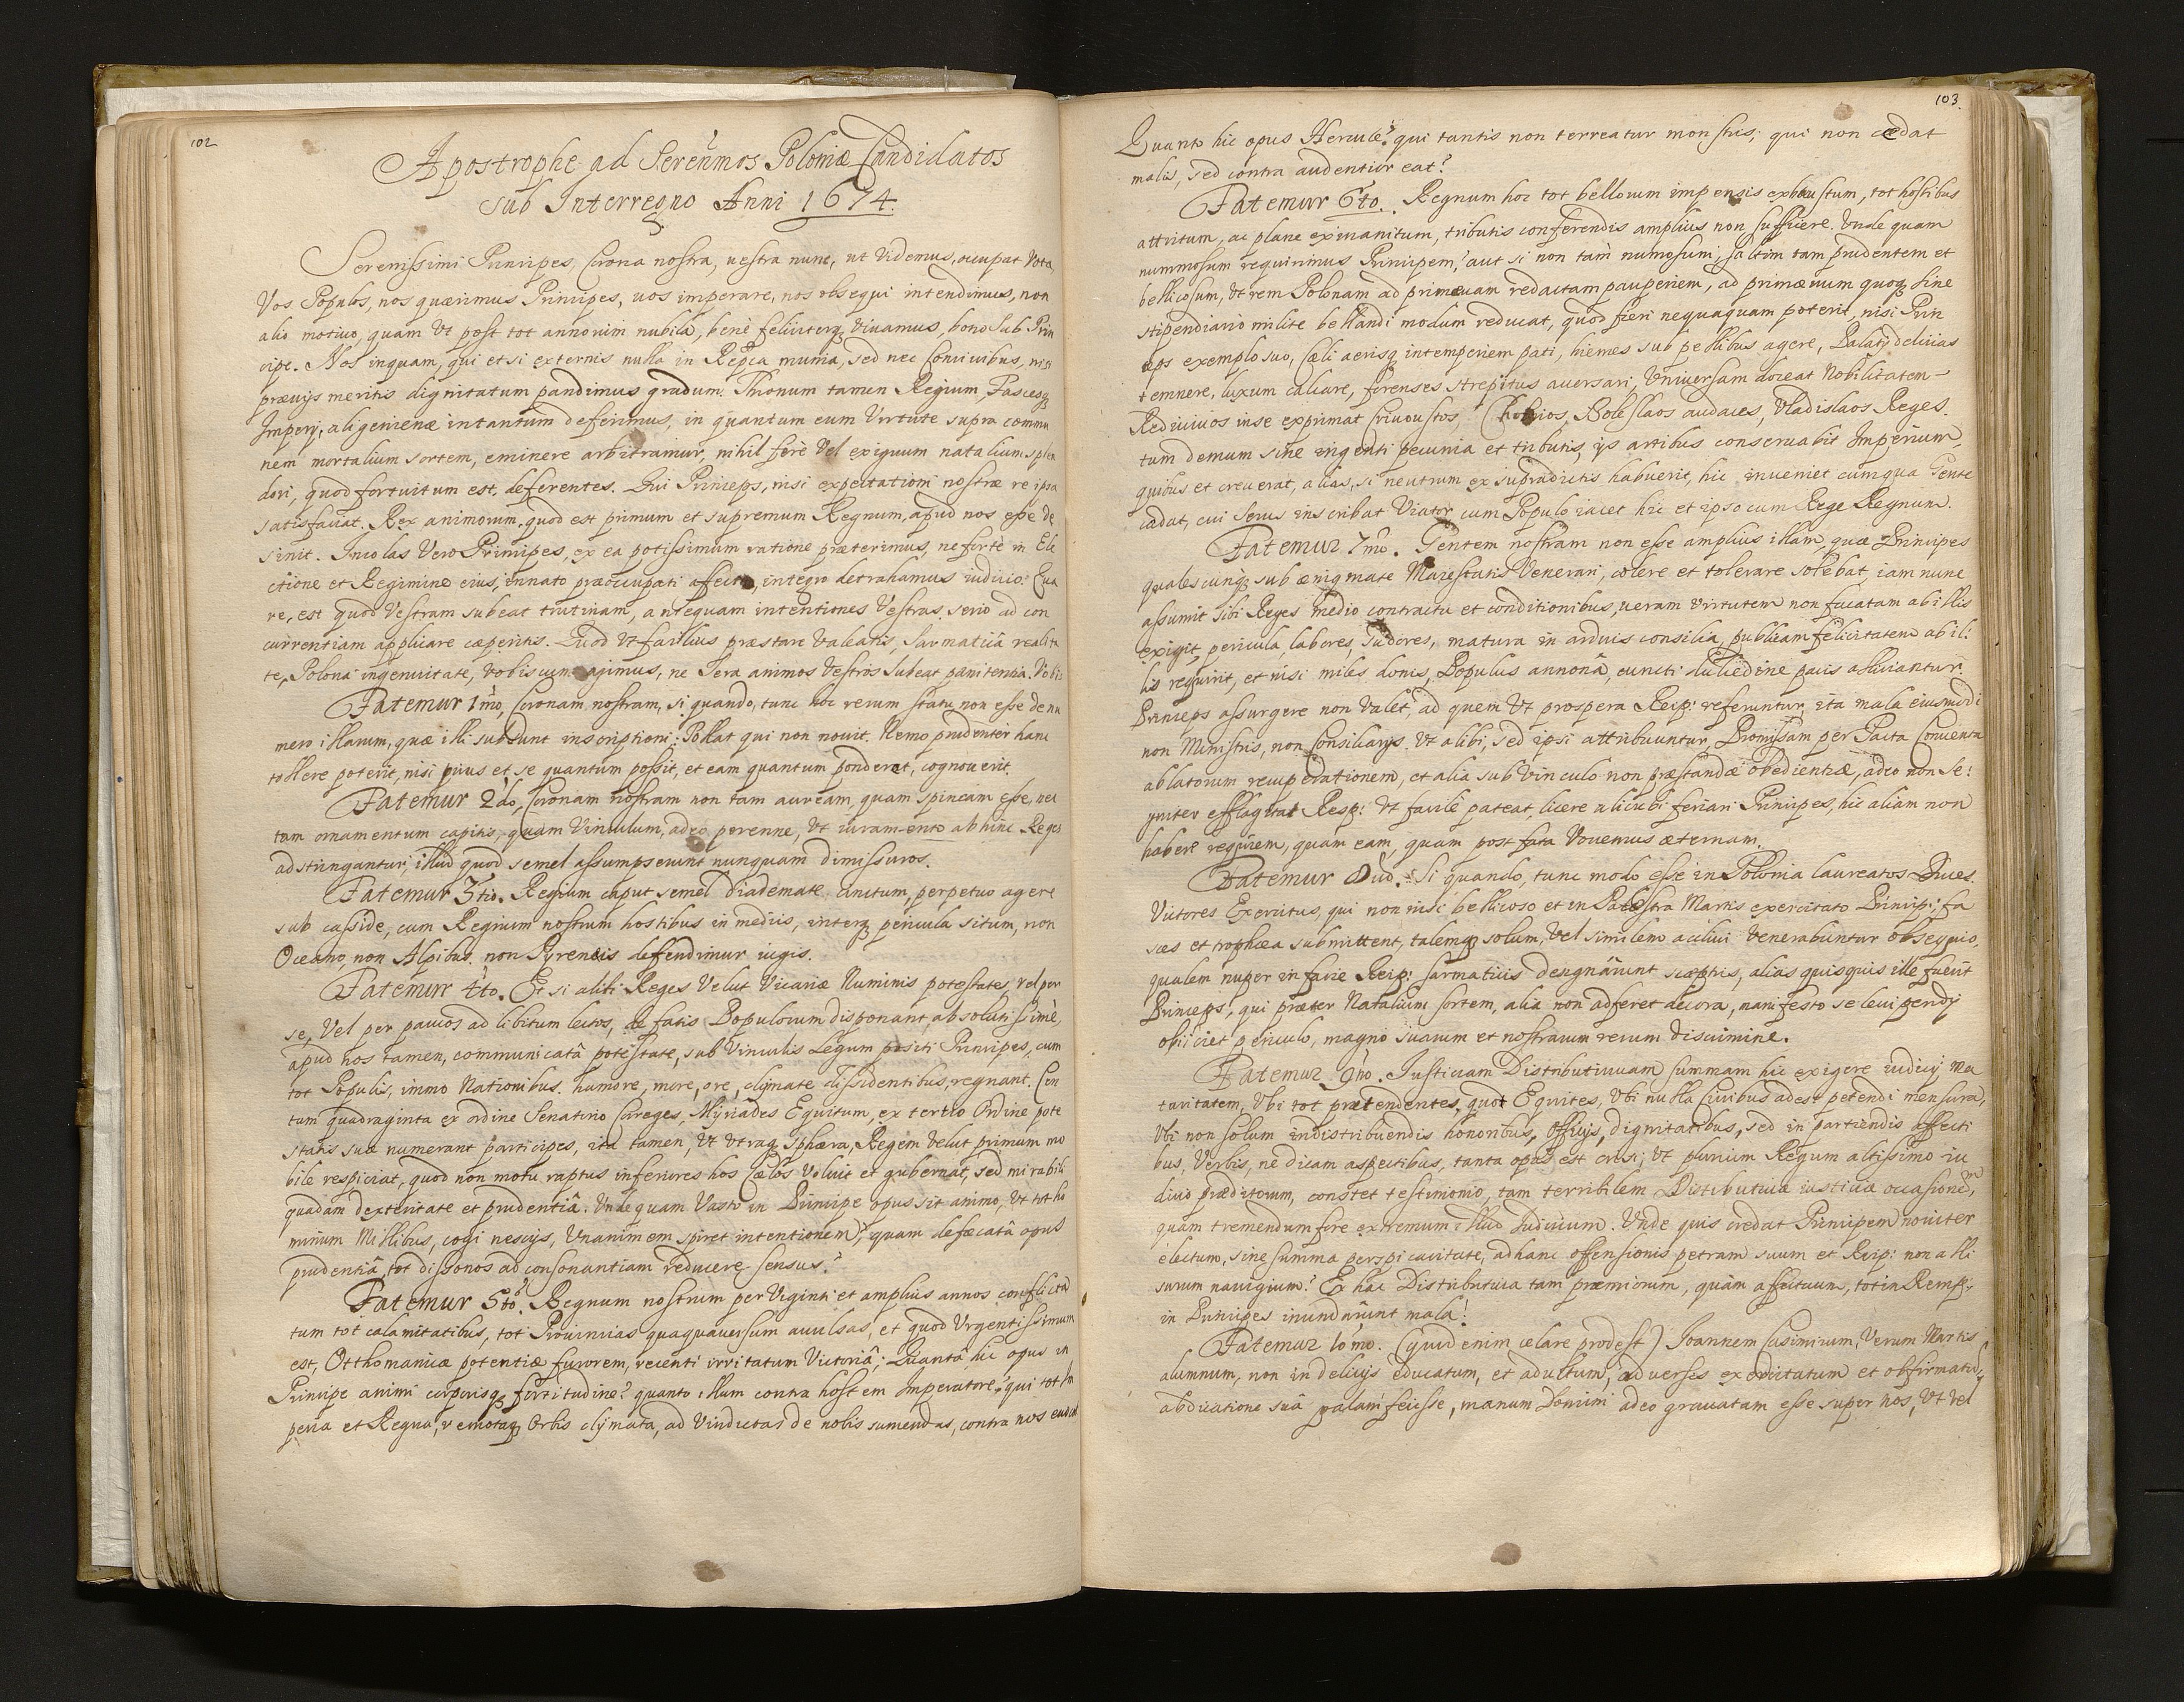 102
Apostrophe ad Serenmos Poloniæ Candidatos
sub Interregno Anni 1674.
Serenissimi Principes, Corona nostra, uestra nunc, ut Videmus, occupat Vota,
Vos Populos, nos quærimus Principes, uos imperare, nos obsequi intendimus, non
alio motiuo, quam Vt post tot annorum nubila, bene feliciterq Viuamus, bono sub Prin
cipe. Nos inquam, qui etsi externis nulla in Repca munia, sed nec Conciuibus, nisi
præuijs meritis dignitatum pandimus gradum. Thronum tamen Regium Fascesq
Imperij, alienigenæ in tantum deferimus, in quantum eum Virtute supra commu
nem mortalium sortem, eminere arbitramur, nihil fere Vel exiguum natalium splen
dori, quod fortuitum est, deferentes. Qui Princeps, nisi expectationi nostræ re ipsa
satisfaciat. Rex animorum, quod est primum et supremum Regnum, apud nos esse de
sinit. Incolas Vero Principes, ex ea potissimum ratione præterimus, ne forte in Ele
ctione et Regimine eius, innato præoccupati affectu, integro detrahamus iudicio. Qua
re, est quod Vestram subeat trutinam, antequam intentiones Vestras serio ad con
currentiam applicare cæperitis. Quod Vt facilius præstare Valeatis, Sarmaticâ realita
te, Polonâ ingenuitate, Vobiscum agimus, ne sera animos Vestros subeat pænitentia. Vobis
Fatemur 1mo, Coronam nostram, si quando, tunc hoc rerum statu, non esse de nu
mero illarum, quæ illi subsunt inscriptioni: Tollat qui non nouit. Nemo prudenter hanc
tollere poterit, nisi prius et se quantum possit, et eam quantum ponderet, cognouerit.
Fatemur 2do, Coronam nostram non tam auream, quam spineam esse, nec
tam ornamentum capitis, quam Vinculum, adeo perenne, Vt iuramento abhinc Reges
adstringantur, illud quod semel assumpserunt nunquam dimissuros.
Fatemur 3tio. Regium caput semel Diademate cinctum, perpetuo agere
sub casside, cum Regnum nostrum hostibus in medijs, interq pericula situm, non
Oceano, non Alpibus, non Pyreneis defendimur iugis.
Fatemur 4to. Et si alibi Reges Velut Vicariæ Numinis potestates, vel per
se, Vel per paucos ad libitum lectos, de fatis Populorum disponant absolutissimè,
apud nos tamen, communicatâ potestate, sub Vinculis Legum positi Principes, cum
tot Populis, immo Nationibus humore, more, ore, clymate dissidentibus, regnant. Cen
tum quadraginta ex ordine Senatorio Coreges, Myriades Equitum, ex tertio Ordine pote
statis suæ numerant participes, ita tamen, Vt Vtraq Sphæra, Regem Velut primum mo
bile respiciat, quod non motu raptus inferiores hos Cælos Voluit et gubernat, sed mirabili
quadam dexteritate et prudentiâ. Vnde quam Vasto in Principe opus sit animo, Vt tot ho
minum Millibus, cogi nescijs, Vnanimem spiret intentionem, quam defæcatâ opus
prudentiâ, tot dissonos ad consonantiam reducere sensus?
Fatemur 5to. Regnum nostrum per Viginti et amplius annos conflicta
tum tot calamitatibus, tot Prouincias quaquauersum auulsas, et quod Vrgentissimum
est, Otthomanicæ potentiæ furorem, recenti irritatum Victoriâ; Quantâ hic opus in
Principe animi corporisq fortitudine? quanto illum contra hostem Imperatore? qui tot Im
peria et Regna, remotaq Orbis clymata, ad Vindictas de nobis sumendas, contra nos
103.
Quanto hic opus Hercule? qui tantis non terreatur monstris; qui non cedat
malis, sed contra audentior eat?
Fatemur 6to. Regnum hoc tot bellorum impensis exhaustum, tot hostibus
attritum, ac plane exinanitum, tributis conferendis amplius non sufficere. Vnde quam
nummosum requirimus Principem? aut si non tàm numosum; saltim tam prudentem et
bellicosum, Vt rem Polonam ad primæuam redactam pauperiem, ad primæuum quoq sine
stipendiario milite bellandi modum reducat, quod fieri nequaquam poterit, nisi Prin
ceps exemplo suo, Cæli aerisq intemperiem pati, hiemes sub pellibus agere, Palatij delicias
temnere, luxum calcare, forenses strepitus auersari, Vniuersam doceat Nobilitatem
Rediuiuos in se exprimat Criuoustos, Chobrios, Boleslaos audaces, Vladislaos Reges.
tum demum sine ingenti pecunia et tributis, ijs artibus conseruabit Imperium,
quibus et creuerat, alias, si neutrum ex supradictis habuerit, hic inueniet cum qua Gente
cadat, cui serus inscribat Viator cum Populo iacet hic et ipso cum Rege Regnum.
Fatemur 7mo. Gentem nostram non esse amplius illam, quæ Principes
qualescunq sub ænigmate Maiestatis Venerari, colere et tolerare solebat, iam nunc
assumit sibi Reges medio contractu et conditionibus, ueram Virtutem non fucatam ab illis
exigit, pericula, labores, sudores, matura in arduis consilia, publicam felicitatem ab il:
lis requirit, et nisi miles donis, Populus annonâ, cuncti dulcedine pacis alliciantur
Princeps assurgere non Valet, ad quem Vt prospera Reip: referuntur, ita mala eiusmodi
non Ministris, non Consiliarijs Vt alibi, sed ipsi attribuuntur, Promissam per Pacta Conuenta
ablatorum recuperationem, et alia sub Vinculo non præstandæ obedientiæ, adeo non se:
gniter efflagitat Resp: Vt facile pateat, licere alicubi feriari Principes, hic aliam non
habere requiem, quam eam, quam post fata Vouemus æternam.
Fatemur 8uo. Si quando, tunc modo esse in Polonia laureatos Duces
Victores Exercitus, qui non nisi bellicoso et in Palestra Martis exercitato Principi fa
sces et trophæa submittent, talemq solum, Vel similem accliui Venerabuntur obsequio,
qualem nuper in facie Reip: sarmaticis designârunt sceptris, alias quisquis ille fuerit
Princeps, qui præter Natalium sortem, alia non adferet decora, manifesto se leuipendij
obijciet periculo, magno suarum et nostrarum rerum discrimine.
Fatemur 9no. Iustitiam Distributiuam summam hic exigere iudicij ma
turitatem, Vbi tot prætendentes, quot Equites, Vbi nulla Ciuibus adest petendi mensura,
Vbi non solum in distribuendis honoribus, officijs, dignitatibus, sed in partiendis affecti
bus, Verbis, ne dicam aspectibus, tanta opus est crisi; Vt plurium Regum altissimo iu
dicio præditorum, constet testimonio, tam terribilem Distributiuæ iustitiæ occasionem,
quàm tremendum fore extremum illud Iudicium. Vnde quis credat Principem nouiter
electum, sine summa perspicacitate, ad hanc offensionis petram suum et Reip: non alli
surum nauigium? Ex hac Distributiua tam præmiorum, quàm affectuum, tot in Remp:
in Principes inundârunt mala!
Fatemur 10mo. (quid enim celare prodest) Ioannem Casimirum, Verum Martis
alumnum, non in delicijs educatum, et adultum, aduersis exercitatum et obfirmatum,
abdicatione suâ palam fecisse, manum Domini adeo grauatam esse super nos, Vt vel